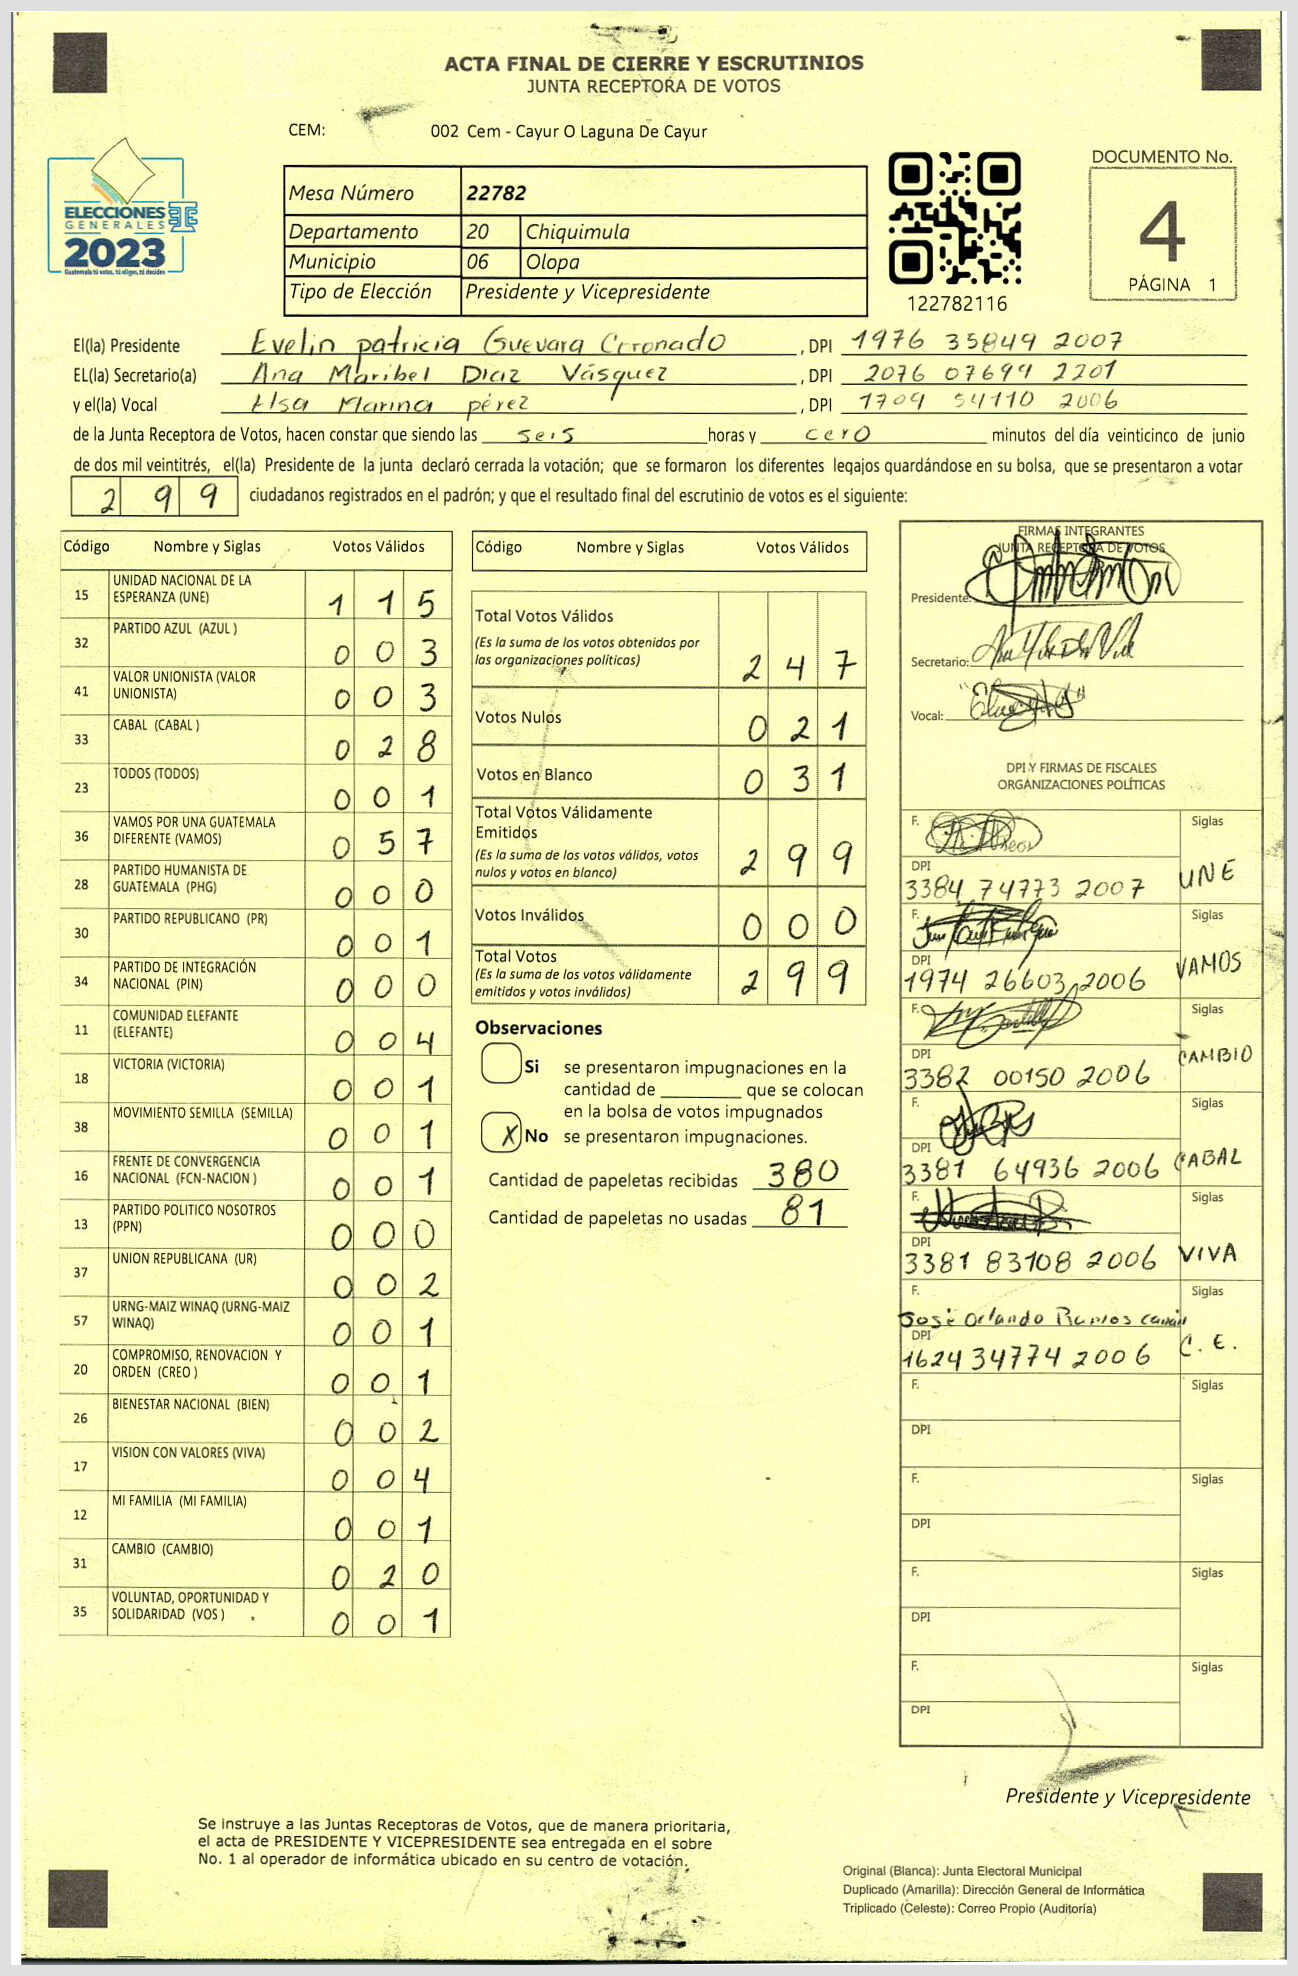 ACTA FINAL DE CIERRE Y ESCRUTINIOS
JUNTA RECEPTORA DE VOTOS
CEM: 002 Cem - Cayur O Laguna De Cayur
ELECCIONES
GENERALES
2023
Guatemala tú votas, tú eliges, tú decides
Mesa Número 22782
Departamento 20 Chiquimula
Municipio 06 Olopa
Tipo de Elección Presidente y Vicepresidente
122782116
DOCUMENTO No.
4
PÁGINA 1
El(la) Presidente Evelin patricia Guevara Coronado, DPI 1976 35849 2007
EL(la) Secretario(a) Ana Maribel Diaz Vásquez, DPI 2076 07699 2201
y el(la) Vocal Elsa Marina pérez, DPI 1709 54110 2006
de la Junta Receptora de Votos, hacen constar que siendo las seis horas y cero minutos del día veinticinco de junio
de dos mil veintitrés, el(la) Presidente de la junta declaró cerrada la votación; que se formaron los diferentes legajos guardándose en su bolsa, que se presentaron a votar
299 ciudadanos registrados en el padrón; y que el resultado final del escrutinio de votos es el siguiente:
Código Nombre y Siglas Votos Válidos
15 UNIDAD NACIONAL DE LA ESPERANZA (UNE) 115
32 PARTIDO AZUL (AZUL ) 003
41 VALOR UNIONISTA (VALOR UNIONISTA) 003
33 CABAL (CABAL ) 028
23 TODOS (TODOS) 001
36 VAMOS POR UNA GUATEMALA DIFERENTE (VAMOS) 057
28 PARTIDO HUMANISTA DE GUATEMALA (PHG) 000
30 PARTIDO REPUBLICANO (PR) 001
34 PARTIDO DE INTEGRACIÓN NACIONAL (PIN) 000
11 COMUNIDAD ELEFANTE (ELEFANTE) 004
18 VICTORIA (VICTORIA) 001
38 MOVIMIENTO SEMILLA (SEMILLA) 001
16 FRENTE DE CONVERGENCIA NACIONAL (FCN-NACION ) 001
13 PARTIDO POLITICO NOSOTROS (PPN) 000
37 UNION REPUBLICANA (UR) 002
57 URNG-MAIZ WINAQ (URNG-MAIZ WINAQ) 001
20 COMPROMISO, RENOVACION Y ORDEN (CREO ) 001
26 BIENESTAR NACIONAL (BIEN) 002
17 VISION CON VALORES (VIVA) 004
12 MI FAMILIA (MI FAMILIA) 001
31 CAMBIO (CAMBIO) 020
35 VOLUNTAD, OPORTUNIDAD Y SOLIDARIDAD (VOS ) 001
Código Nombre y Siglas Votos Válidos
Total Votos Válidos 247
(Es la suma de los votos obtenidos por
las organizaciones políticas)
Votos Nulos 021
Votos en Blanco 031
Total Votos Válidamente
Emitidos 299
(Es la suma de los votos válidos, votos
nulos y votos en blanco)
Votos Inválidos 000
Total Votos 299
(Es la suma de los votos válidamente
emitidos y votos inválidos)
Observaciones
Si se presentaron impugnaciones en la
cantidad de ________ que se colocan
en la bolsa de votos impugnados
X No se presentaron impugnaciones.
Cantidad de papeletas recibidas 380
Cantidad de papeletas no usadas 81
FIRMAS INTEGRANTES
JUNTA RECEPTORA DE VOTOS
Presidente:
Secretario:
Vocal:
DPI Y FIRMAS DE FISCALES
ORGANIZACIONES POLÍTICAS
F. Siglas
DPI 3384 74773 2007 UNE
F. Siglas
DPI 1974 26603 2006 VAMOS
F. Siglas
DPI 3382 00150 2006 CAMBIO
F. Siglas
DPI 3381 64936 2006 CABAL
F. Siglas
DPI 3381 83108 2006 VIVA
F. José Orlando Siglas
DPI 1624 34774 2006 C. E.
F. Siglas
DPI
F. Siglas
DPI
F. Siglas
DPI
F. Siglas
DPI
Presidente y Vicepresidente
Se instruye a las Juntas Receptoras de Votos, que de manera prioritaria,
el acta de PRESIDENTE Y VICEPRESIDENTE sea entregada en el sobre
No. 1 al operador de informática ubicado en su centro de votación.
Original (Blanca): Junta Electoral Municipal
Duplicado (Amarilla): Dirección General de Informática
Triplicado (Celeste): Correo Propio (Auditoría)